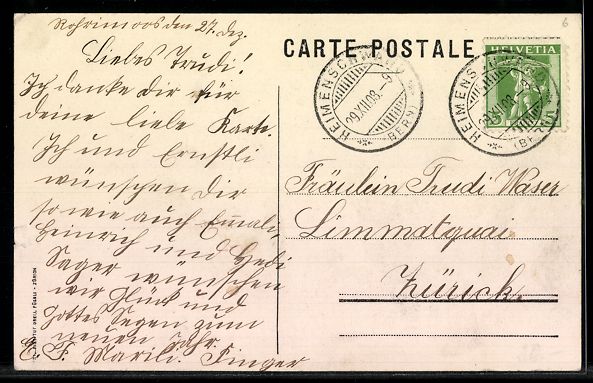 Rohrimoos den 27. Dez.
Liebes Trudi!
Ich danke Dir für
deine liebe Karte.
Ich und Ernstli
wünschen Dir
so wie auch Emmali
Heinrich und Hedi
Sager wünschen
wir Glück und
Gottes Segen zum
neuen Jahr.
Marili Finger
CARTE POSTALE
HELVETIA
5
HEIMENSCHWAND
29.XII.08.-9
(BERN)
HEIMENSCHWAND
29.XII.08.-9
(BERN)
Fräulein Trudi Waser
Limmatquai
Zürich.
ORELL FÜSSLI - ZÜRICH
6